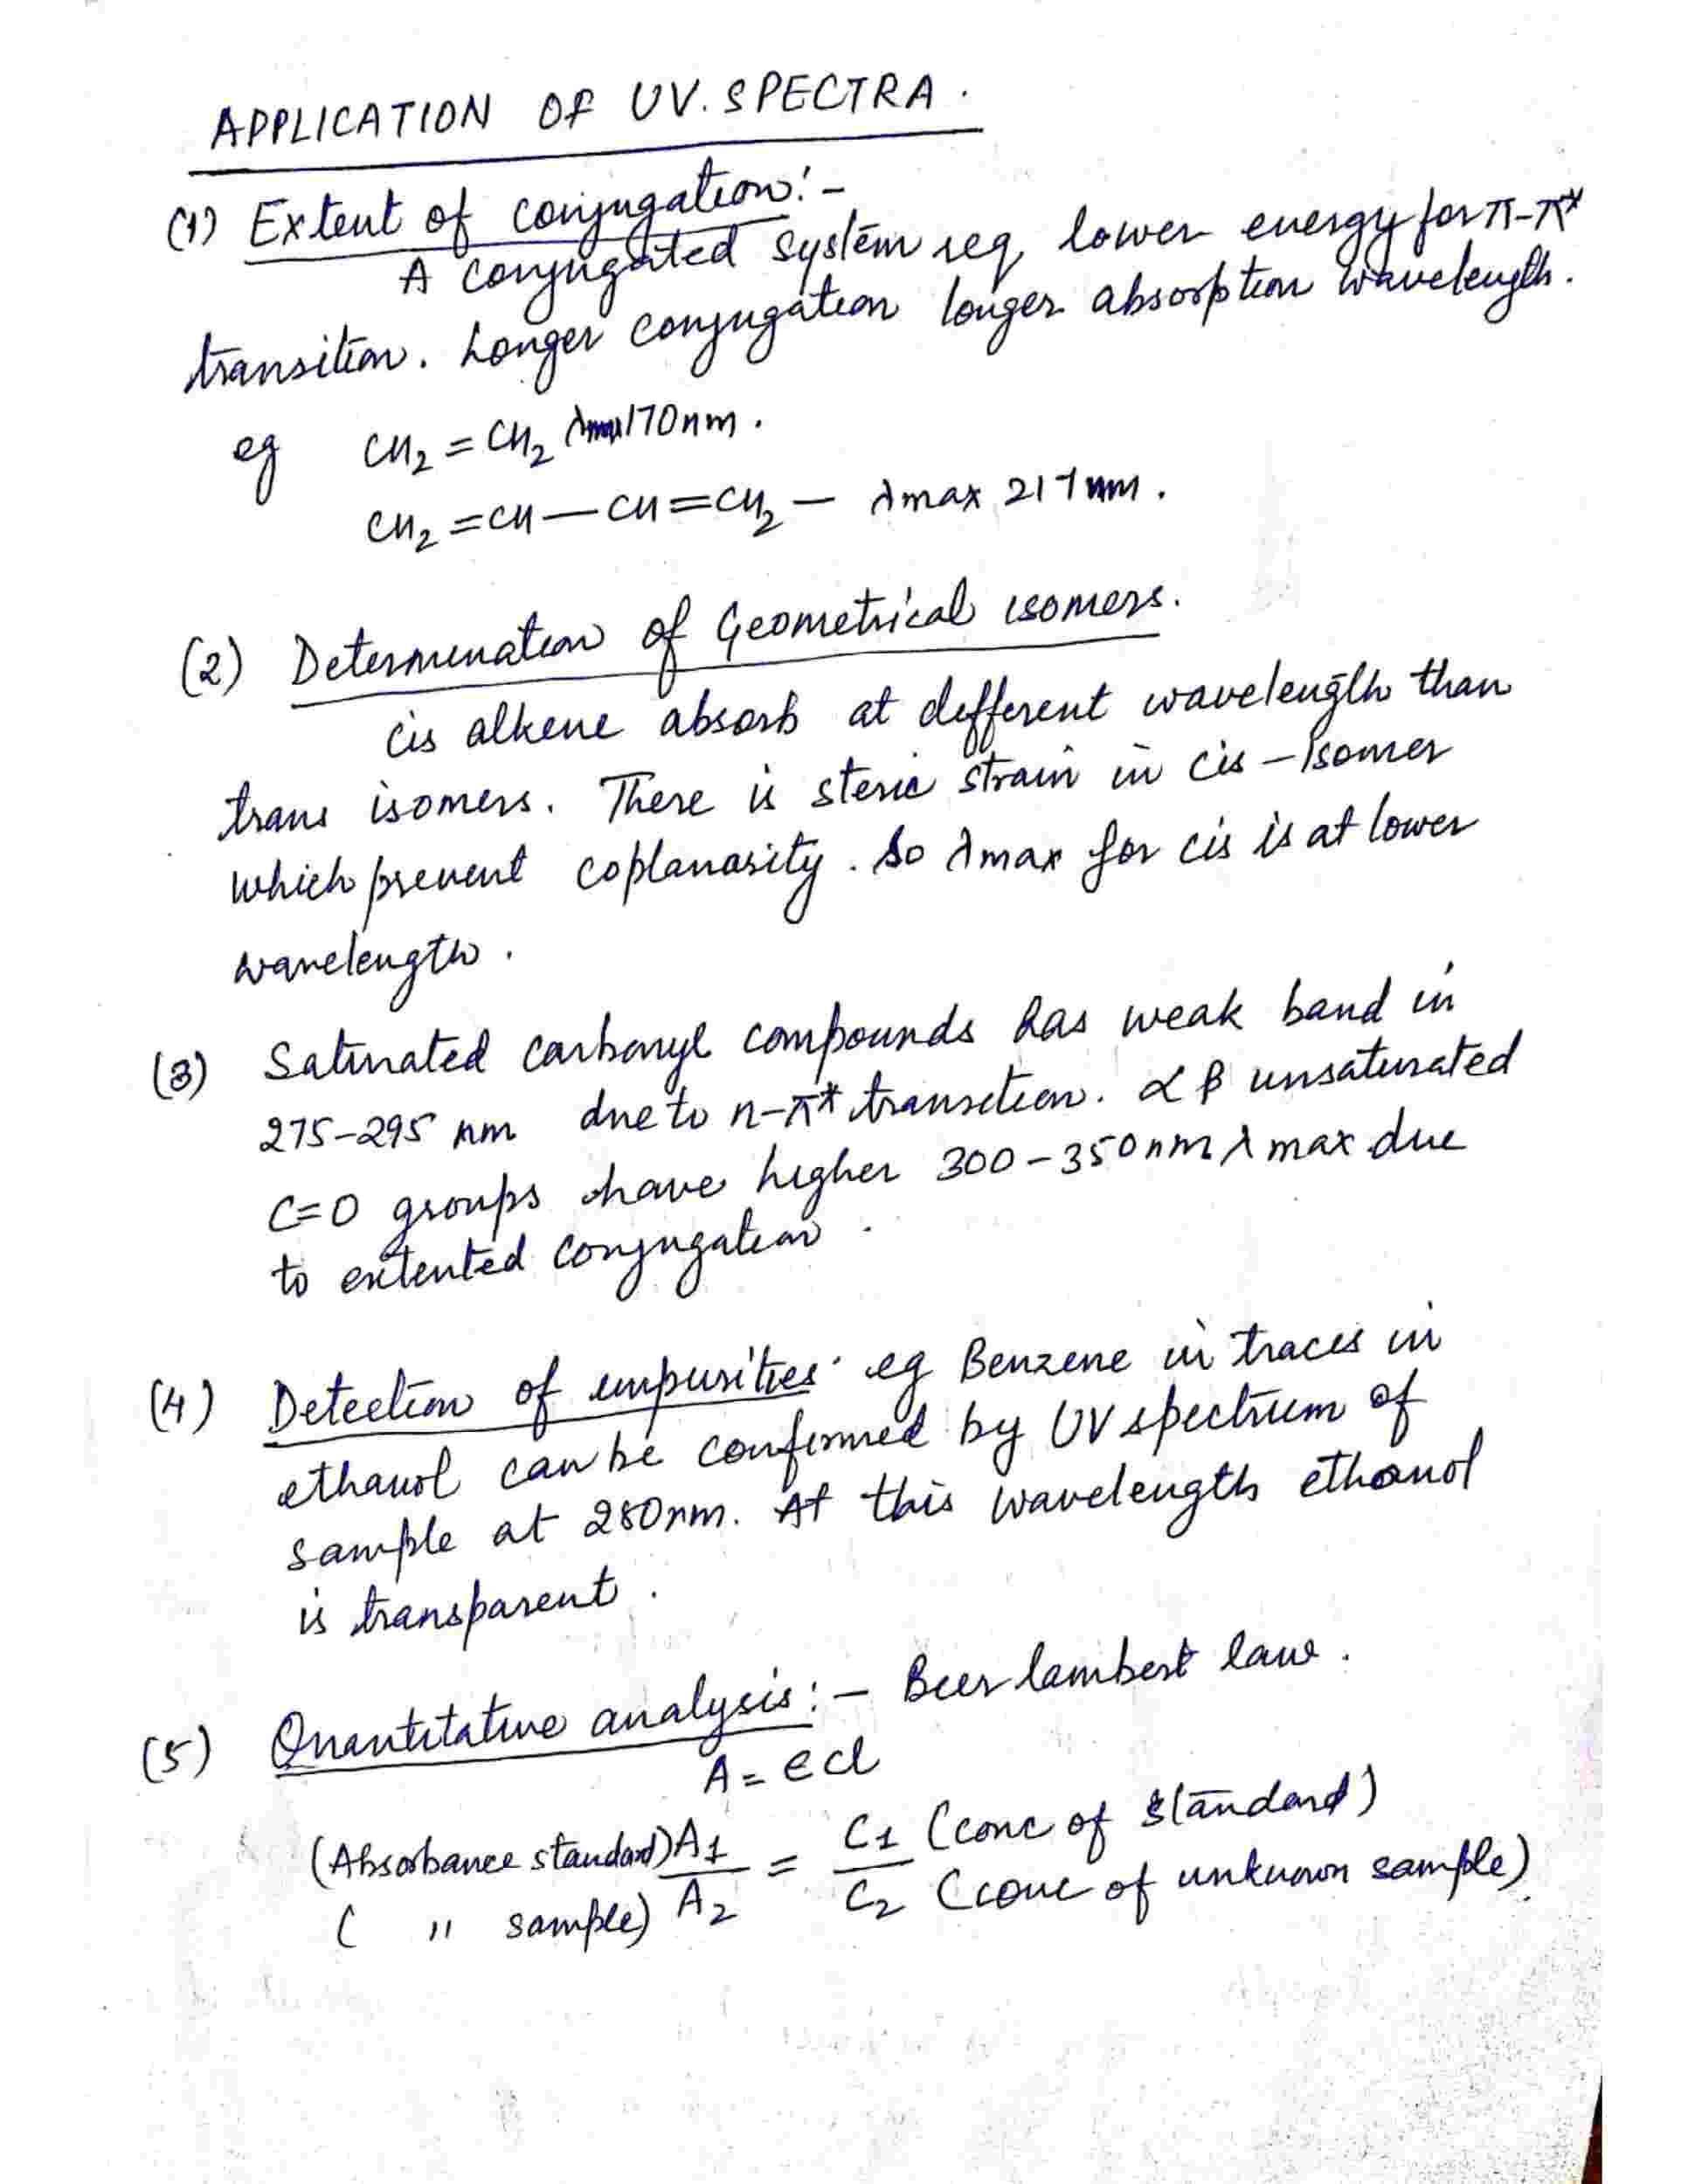 APPLICATION OF UV. SPECTRA.
(1) Extent of conjugation:-
A conjugated system req. lower energy for π-π*
transition. Longer conjugation longer absorption wavelength.
eg CH₂ = CH₂ λmax 170nm.
CH₂ = CH — CH = CH₂ — λmax 217 nm.
(2) Determination of Geometrical isomers.
cis alkene absorb at different wavelength than
trans isomers. There is steric strain in cis - isomer
which prevent coplanarity. So λmax for cis is at lower
wavelength.
(3) Saturated carbonyl compounds has weak band in
275-295 nm due to n-π* transition. α β unsaturated
C=O groups have higher 300-350nm λ max due
to extented conjugation.
(4) Detection of impurities· eg Benzene in traces in
ethanol can be confirmed by UV spectrum of
sample at 280nm. At this wavelength ethanol
is transparent.
(5) Quantitative analysis:- Beer lambert law.
A = ∈cl
(Absorbance standard) A₁ = C₁ (conc of standard)
( " sample) A₂ C₂ (conc of unknown sample).